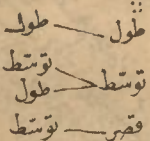 طول طول
توسّط
توسّط
طول
قصر توسّط